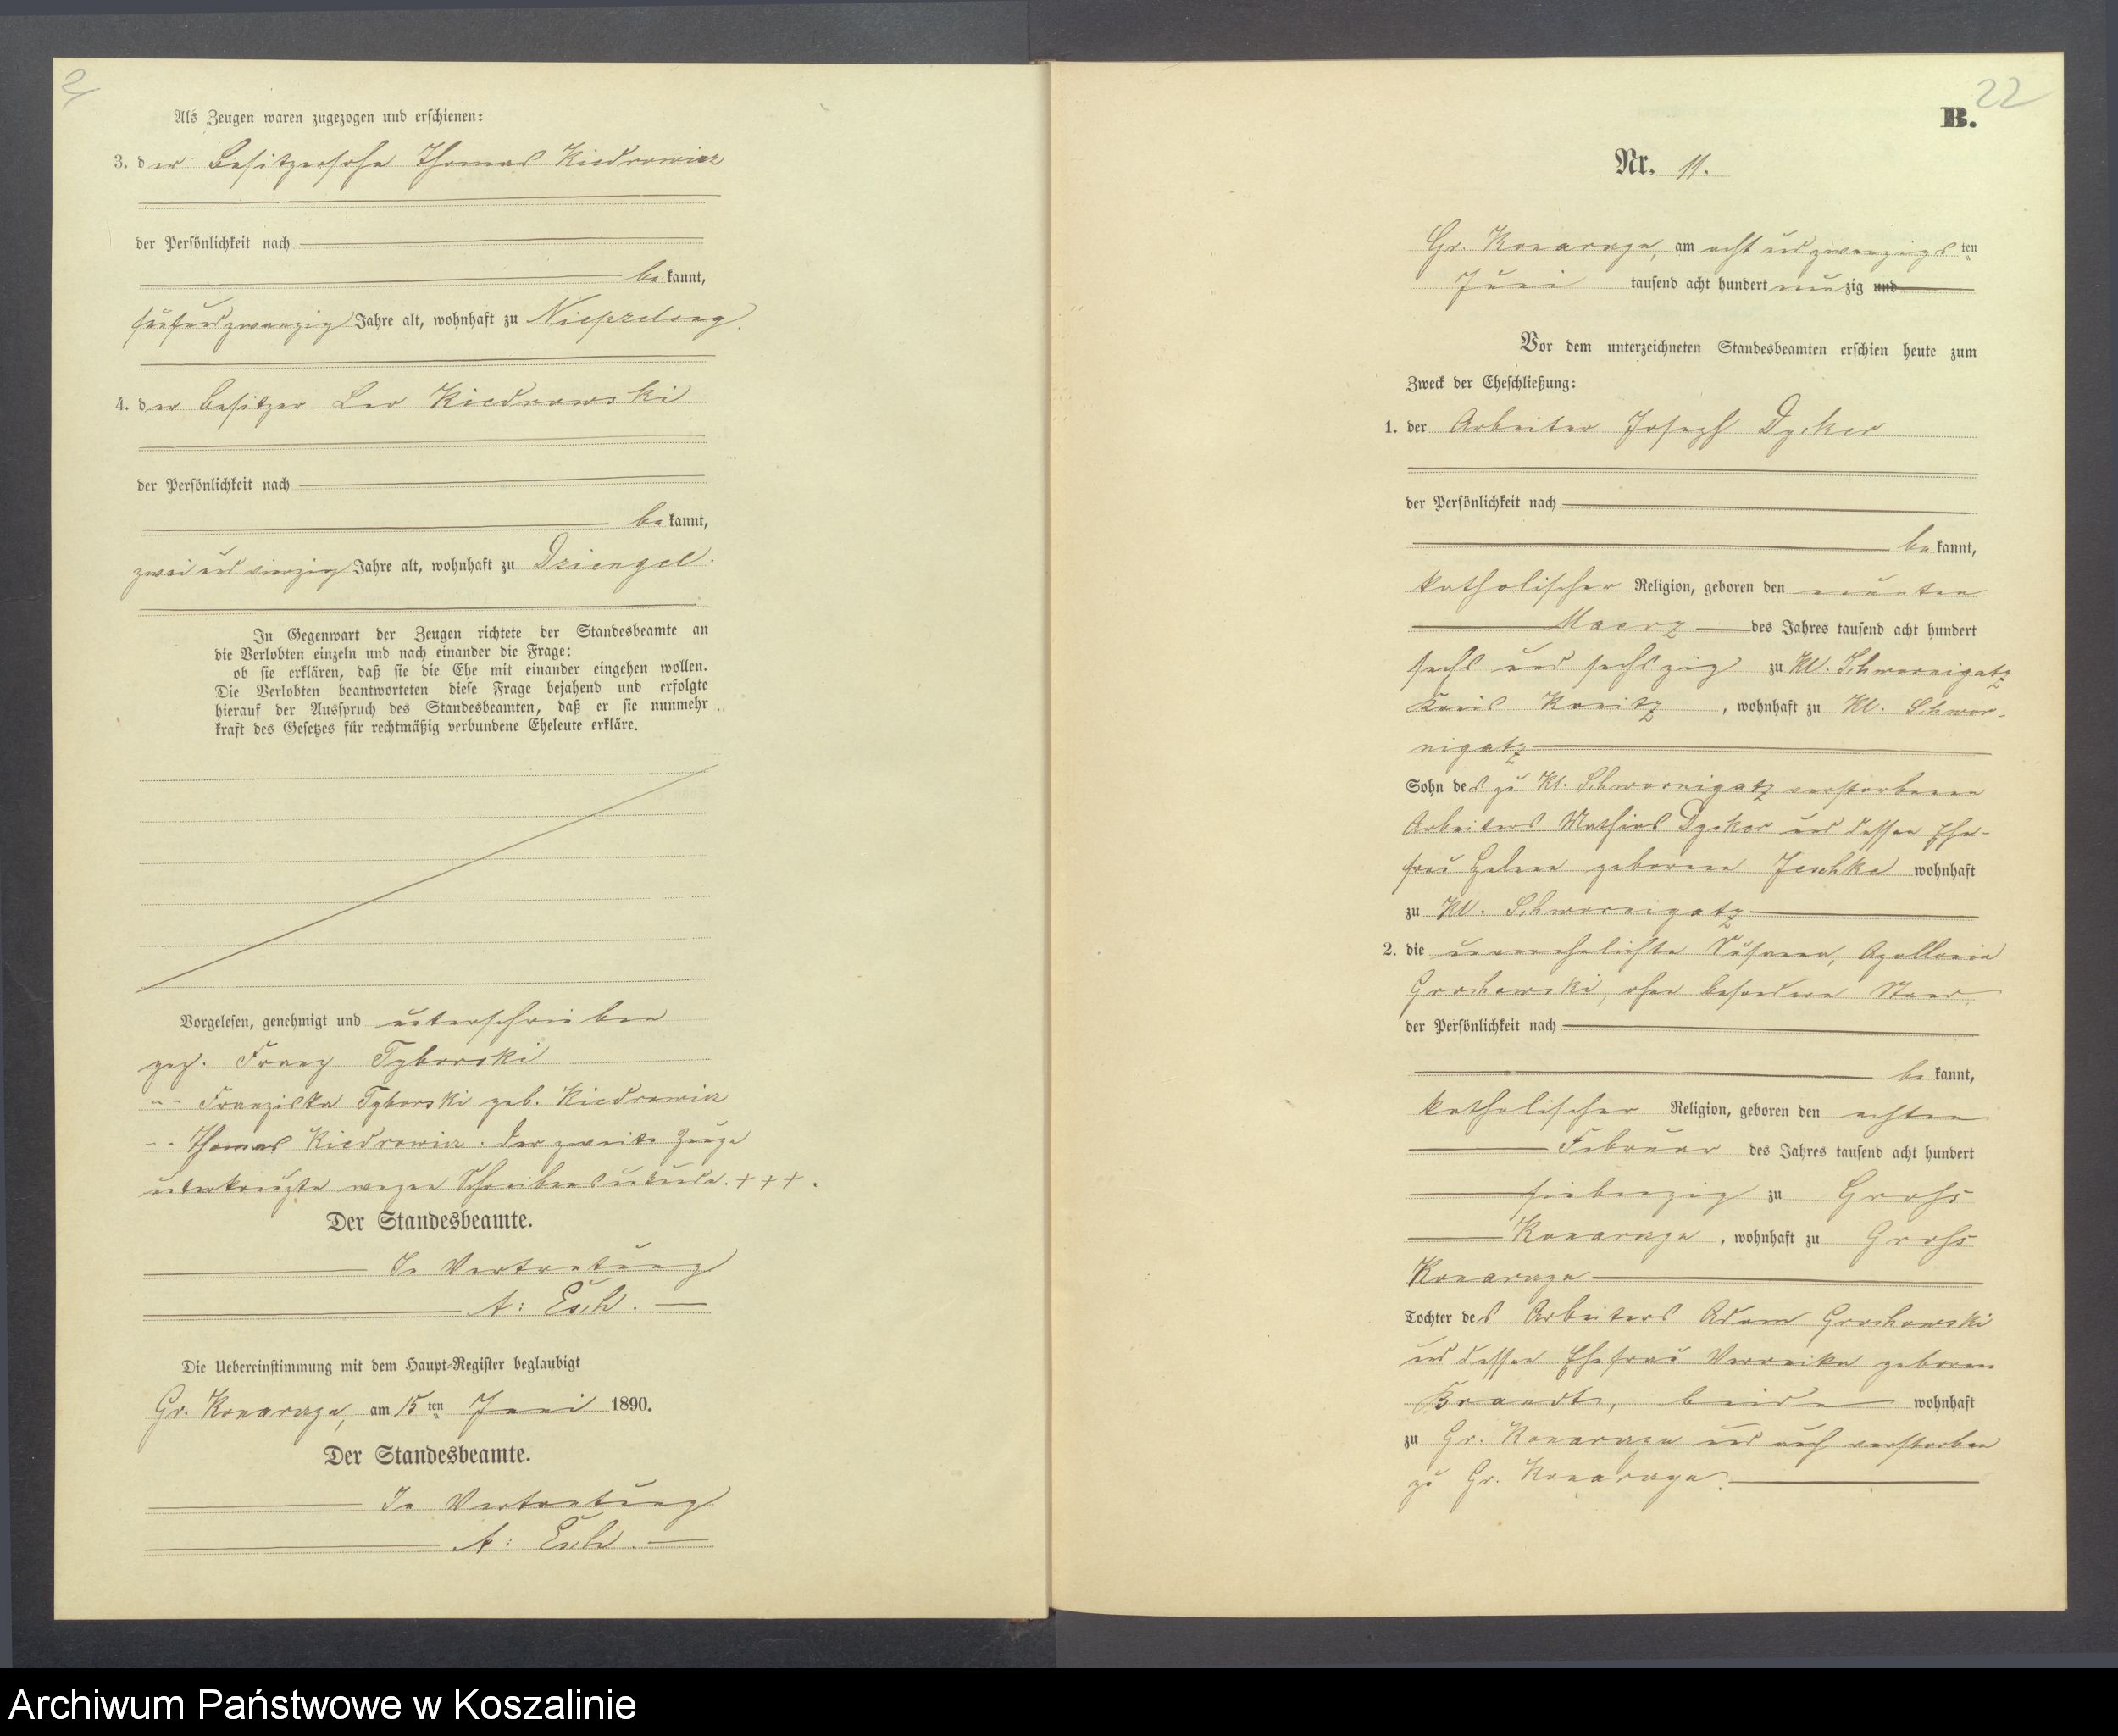 21
Als Zeugen waren zugezogen und erschienen:
3. der Besitzersohn Thomas Kiedrowicz
der Persönlichkeit nach
be kannt,
fünfundzwanzig Jahre alt, wohnhaft zu Nieprelong.
4. der Besitzer Leo Kiedrowski
der Persönlichkeit nach
be kannt,
zwei und vierzig Jahre alt, wohnhaft zu Dziengel.
In Gegenwart der Zeugen richtete der Standesbeamte an
die Verlobten einzeln und nach einander die Frage:
ob sie erklären, daß sie die Ehe mit einander eingehen wollen.
Die Verlobten beantworteten diese Frage bejahend und erfolgte
hierauf der Ausspruch des Standesbeamten, daß er sie nunmehr
kraft des Gesetzes für rechtmäßig verbundene Eheleute erkläre.
Vorgelesen, genehmigt und unterschrieben
gez. Franz Tyborski
"- Franziska Tyborski geb. Kiedrowicz
-- Thomas Kiedrowicz. Der zweite Zeuge
unterkreuzte wegen Schreibensunkunde. +++.
Der Standesbeamte.
In Vertretung
A: Esch.
Die Uebereinstimmung mit dem Haupt-Register beglaubigt
Gr. Konarczyn, am 15 ten Juni 1890.
Der Standesbeamte.
In Vertretung
A: Esch.
22
B.
Nr. 11.
Gr. Konarczyn, am acht und zwanzigs ten
Juni tausend acht hundert neunzig und
Vor dem unterzeichneten Standesbeamten erschien heute zum
Zweck der Eheschließung:
1. der Arbeiter Joseph Dycker
der Persönlichkeit nach
be kannt,
katholischer Religion, geboren den neunten
Maerz des Jahres tausend acht hundert
sechs und sechszig zu Kl. Schwornigatz
Kreis Konitz, wohnhaft zu Kl. Schwor-
nigatz
Sohn des zu Kl. Schwornigatz verstorbenen
Arbeiters Mathias Dycker und dessen Ehe-
frau Helene geborene Jeschke wohnhaft
zu Kl. Schwornigatz
2. die unverehelichte Susanna, Apollonia
Grochowski, ohne besonderen Stand
der Persönlichkeit nach
be kannt,
katholischer Religion, geboren den achten
Februar des Jahres tausend acht hundert
siebenzig zu Gross
Konarczyn, wohnhaft zu Gross
Konarczyn
Tochter des Arbeiters Adam Grochowski
und dessen Ehefrau Veronika geborene
Brandt, beide wohnhaft
zu Gr. Konarczyn und auch verstorben
zu Gr. Konarczyn.
Archiwum Państwowe w Koszalinie